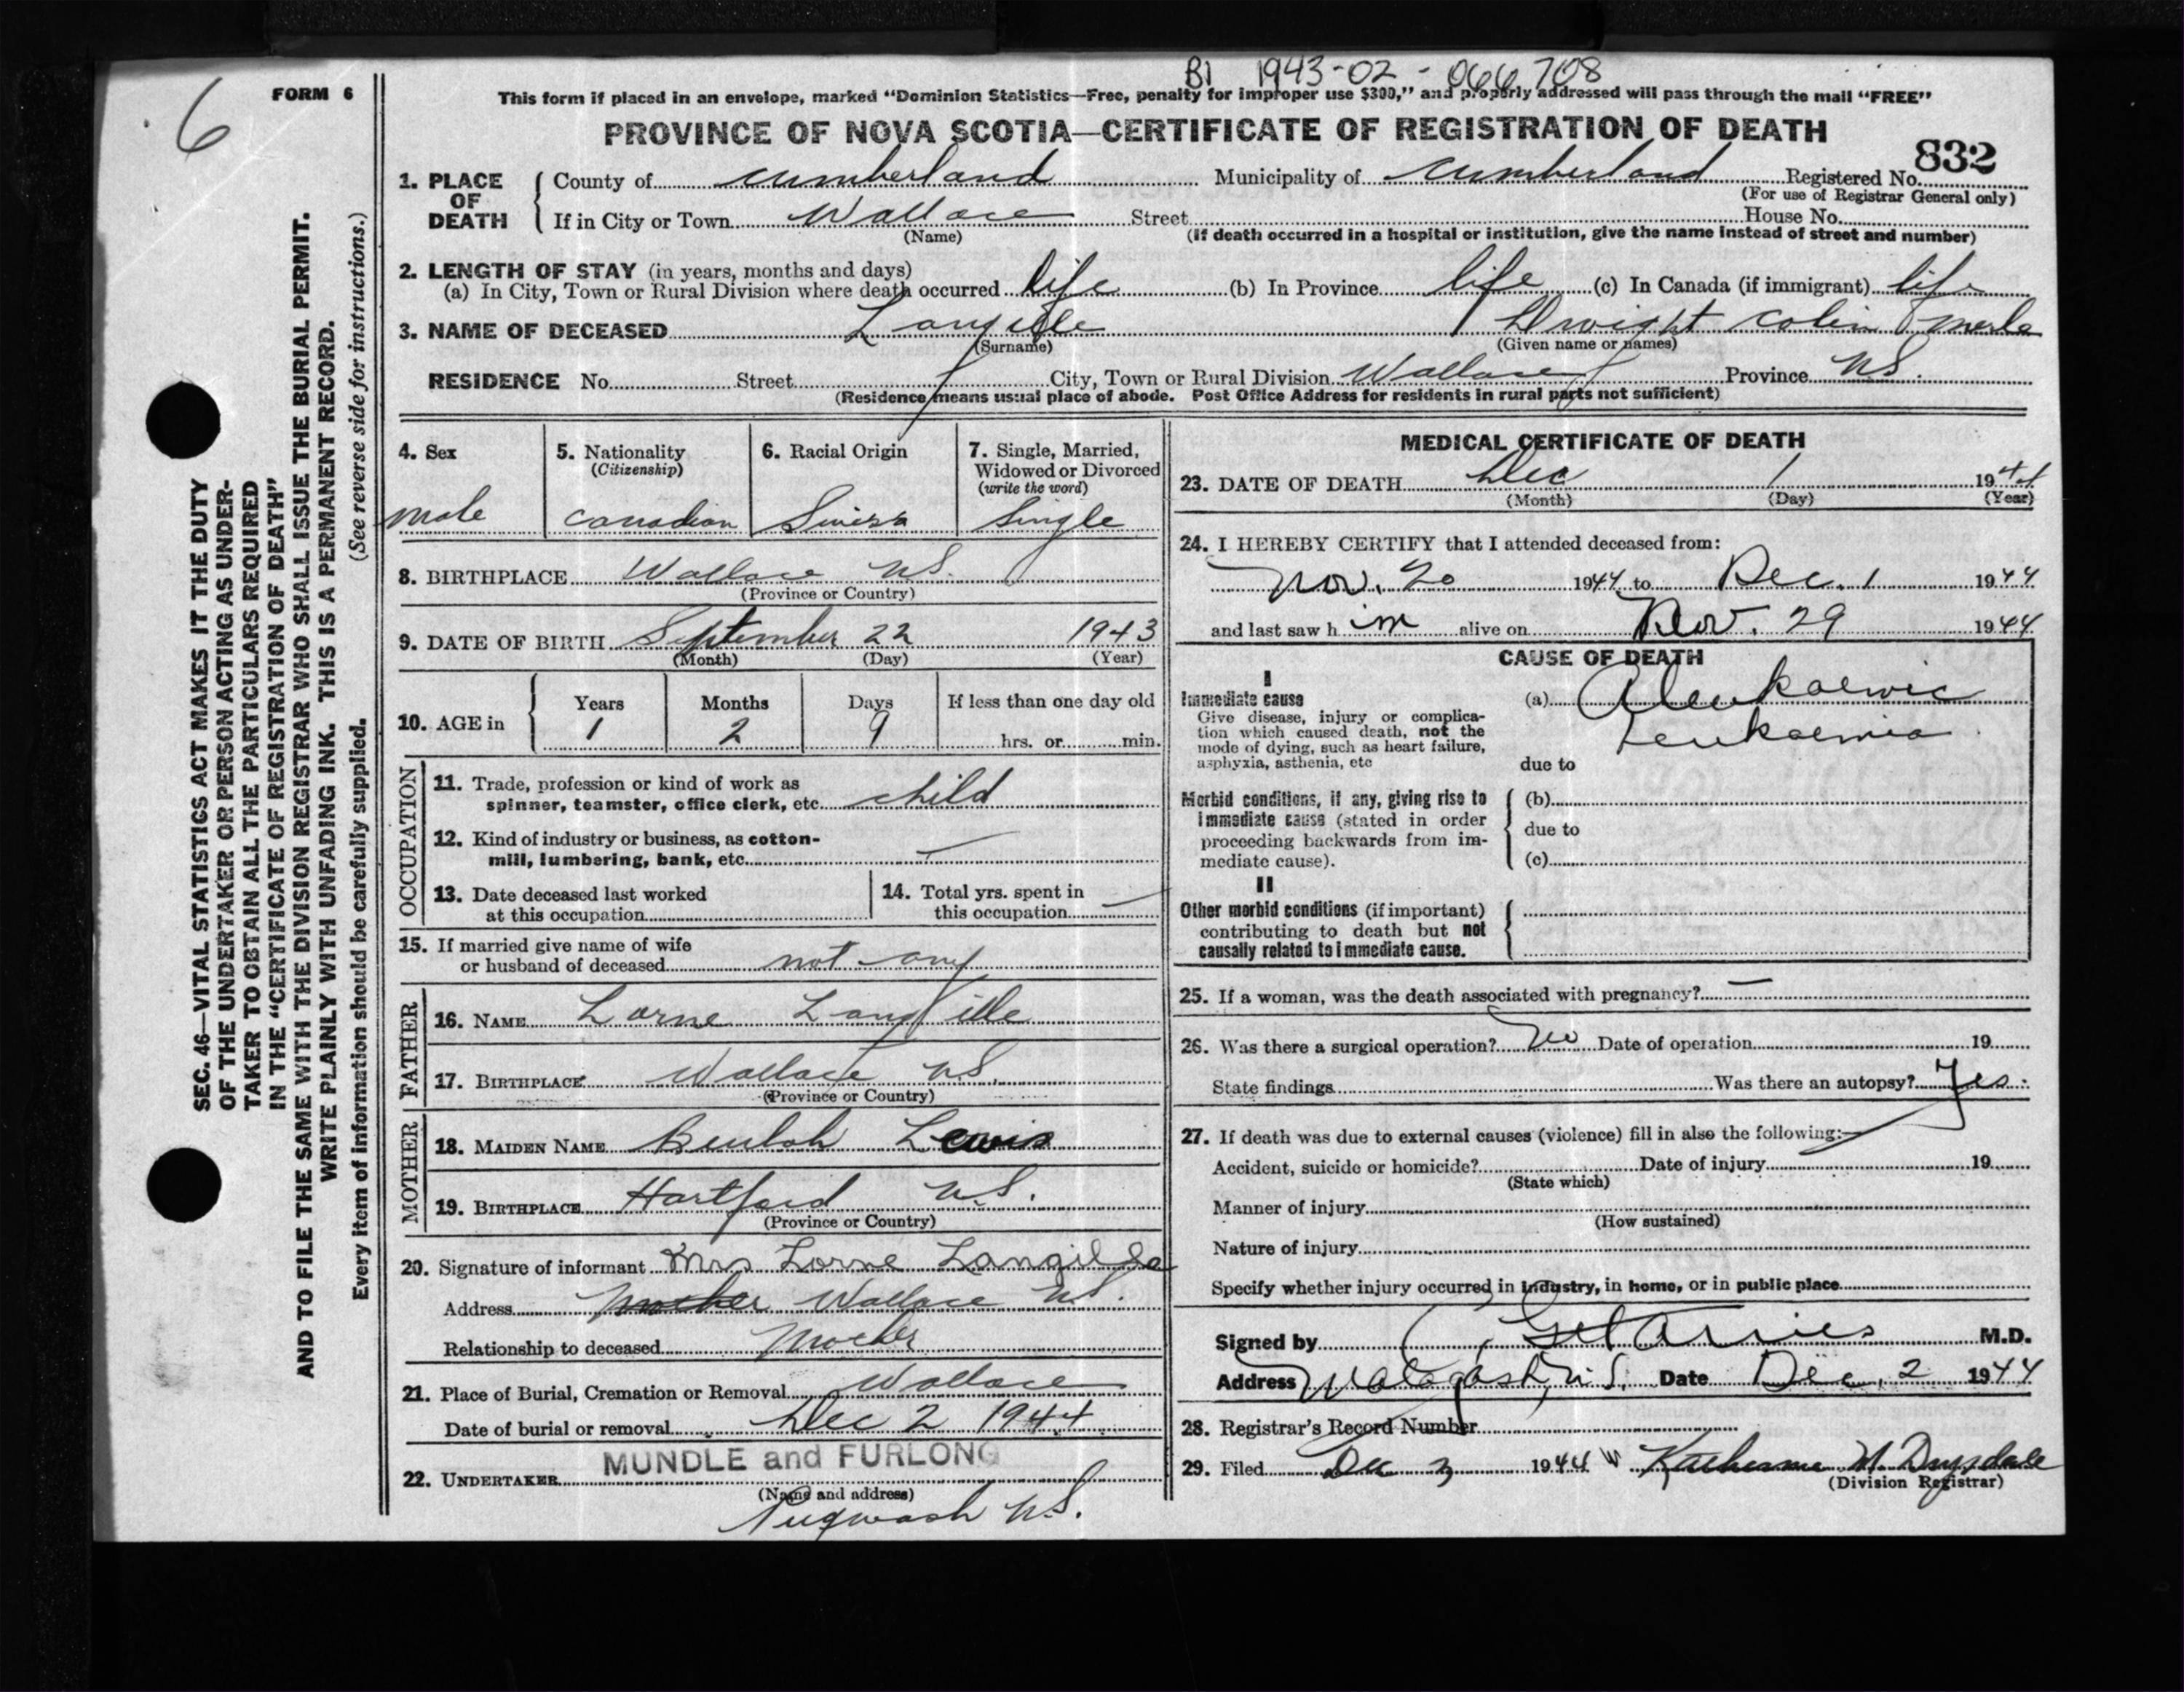 B1 1943-02-066708
6
FORM 6
This form if placed in an envelope, marked "Dominion Statistics—Free, penalty for improper use $300," and properly addressed will pass through the mail "FREE"
PROVINCE OF NOVA SCOTIA—CERTIFICATE OF REGISTRATION OF DEATH
832
1. PLACE OF DEATH { County of Cumberland Municipality of Cumberland Registered No.
(For use of Registrar General only)
If in City or Town Wallace Street House No.
(Name) (If death occurred in a hospital or institution, give the name instead of street and number)
2. LENGTH OF STAY (in years, months and days)
(a) In City, Town or Rural Division where death occurred life (b) In Province life (c) In Canada (if immigrant) life
3. NAME OF DECEASED Langille Dwight Colin Merle
(Surname) (Given name or names)
RESIDENCE No. Street City, Town or Rural Division Wallace Province N.S.
(Residence means usual place of abode. Post Office Address for residents in rural parts not sufficient)
4. Sex
male
5. Nationality
(Citizenship)
Canadian
6. Racial Origin
Swiss
7. Single, Married,
Widowed or Divorced
(write the word)
Single
8. BIRTHPLACE Wallace N.S.
(Province or Country)
9. DATE OF BIRTH September 22 1943
(Month) (Day) (Year)
10. AGE in { Years Months Days If less than one day old
1 2 9 hrs. or min.
OCCUPATION
11. Trade, profession or kind of work as
spinner, teamster, office clerk, etc. child
12. Kind of industry or business, as cotton-
mill, lumbering, bank, etc. —
13. Date deceased last worked
at this occupation
14. Total yrs. spent in
this occupation —
15. If married give name of wife
or husband of deceased not any
FATHER
16. NAME Lorne Langille
17. BIRTHPLACE Wallace N.S.
(Province or Country)
MOTHER
18. MAIDEN NAME Beulah Lewis
19. BIRTHPLACE Hartford N.S.
(Province or Country)
20. Signature of informant Mrs Lorne Langille
Address Mother Wallace N.S.
Relationship to deceased Mother
21. Place of Burial, Cremation or Removal Wallace
Date of burial or removal Dec 2 1944
MUNDLE and FURLONG
22. UNDERTAKER
(Name and address)
Pugwash N.S.
MEDICAL CERTIFICATE OF DEATH
23. DATE OF DEATH Dec 1 1944
(Month) (Day) (Year)
24. I HEREBY CERTIFY that I attended deceased from:
Nov. 20 1944 to Dec. 1 1944
and last saw him alive on Nov. 29 1944
CAUSE OF DEATH
I
Immediate cause
Give disease, injury or complica-
tion which caused death, not the
mode of dying, such as heart failure,
asphyxia, asthenia, etc
(a) Aleukaemic
Leukaemia
due to
Morbid conditions, if any, giving rise to
immediate cause (stated in order
proceeding backwards from im-
mediate cause).
(b)
due to
(c)
II
Other morbid conditions (if important)
contributing to death but not
causally related to immediate cause.
25. If a woman, was the death associated with pregnancy? —
26. Was there a surgical operation? No Date of operation 19
State findings Was there an autopsy? Yes.
27. If death was due to external causes (violence) fill in also the following:—
Accident, suicide or homicide? Date of injury 19
(State which)
Manner of injury
(How sustained)
Nature of injury
Specify whether injury occurred in industry, in home, or in public place
Signed by M.D.
Address Malagash, N.S. Date Dec. 2 1944
28. Registrar's Record Number
29. Filed Dec 3 1944 Katherine M. Drysdale
(Division Registrar)
SEC. 46—VITAL STATISTICS ACT MAKES IT THE DUTY
OF THE UNDERTAKER OR PERSON ACTING AS UNDER-
TAKER TO OBTAIN ALL THE PARTICULARS REQUIRED
IN THE "CERTIFICATE OF REGISTRATION OF DEATH"
AND TO FILE THE SAME WITH THE DIVISION REGISTRAR WHO SHALL ISSUE THE BURIAL PERMIT.
WRITE PLAINLY WITH UNFADING INK. THIS IS A PERMANENT RECORD.
Every item of information should be carefully supplied. (See reverse side for instructions.)